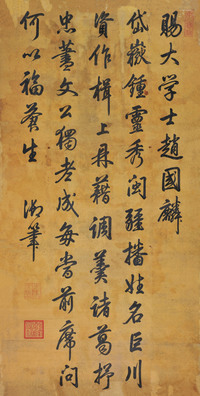 賜大学士趙國麟
岱嶽鍾靈秀閩疆播姓名臣川
資作楫上鼎藉調羹諸葛抒
忠藎文公獨老成每當前席問
何以福蒼生　御筆